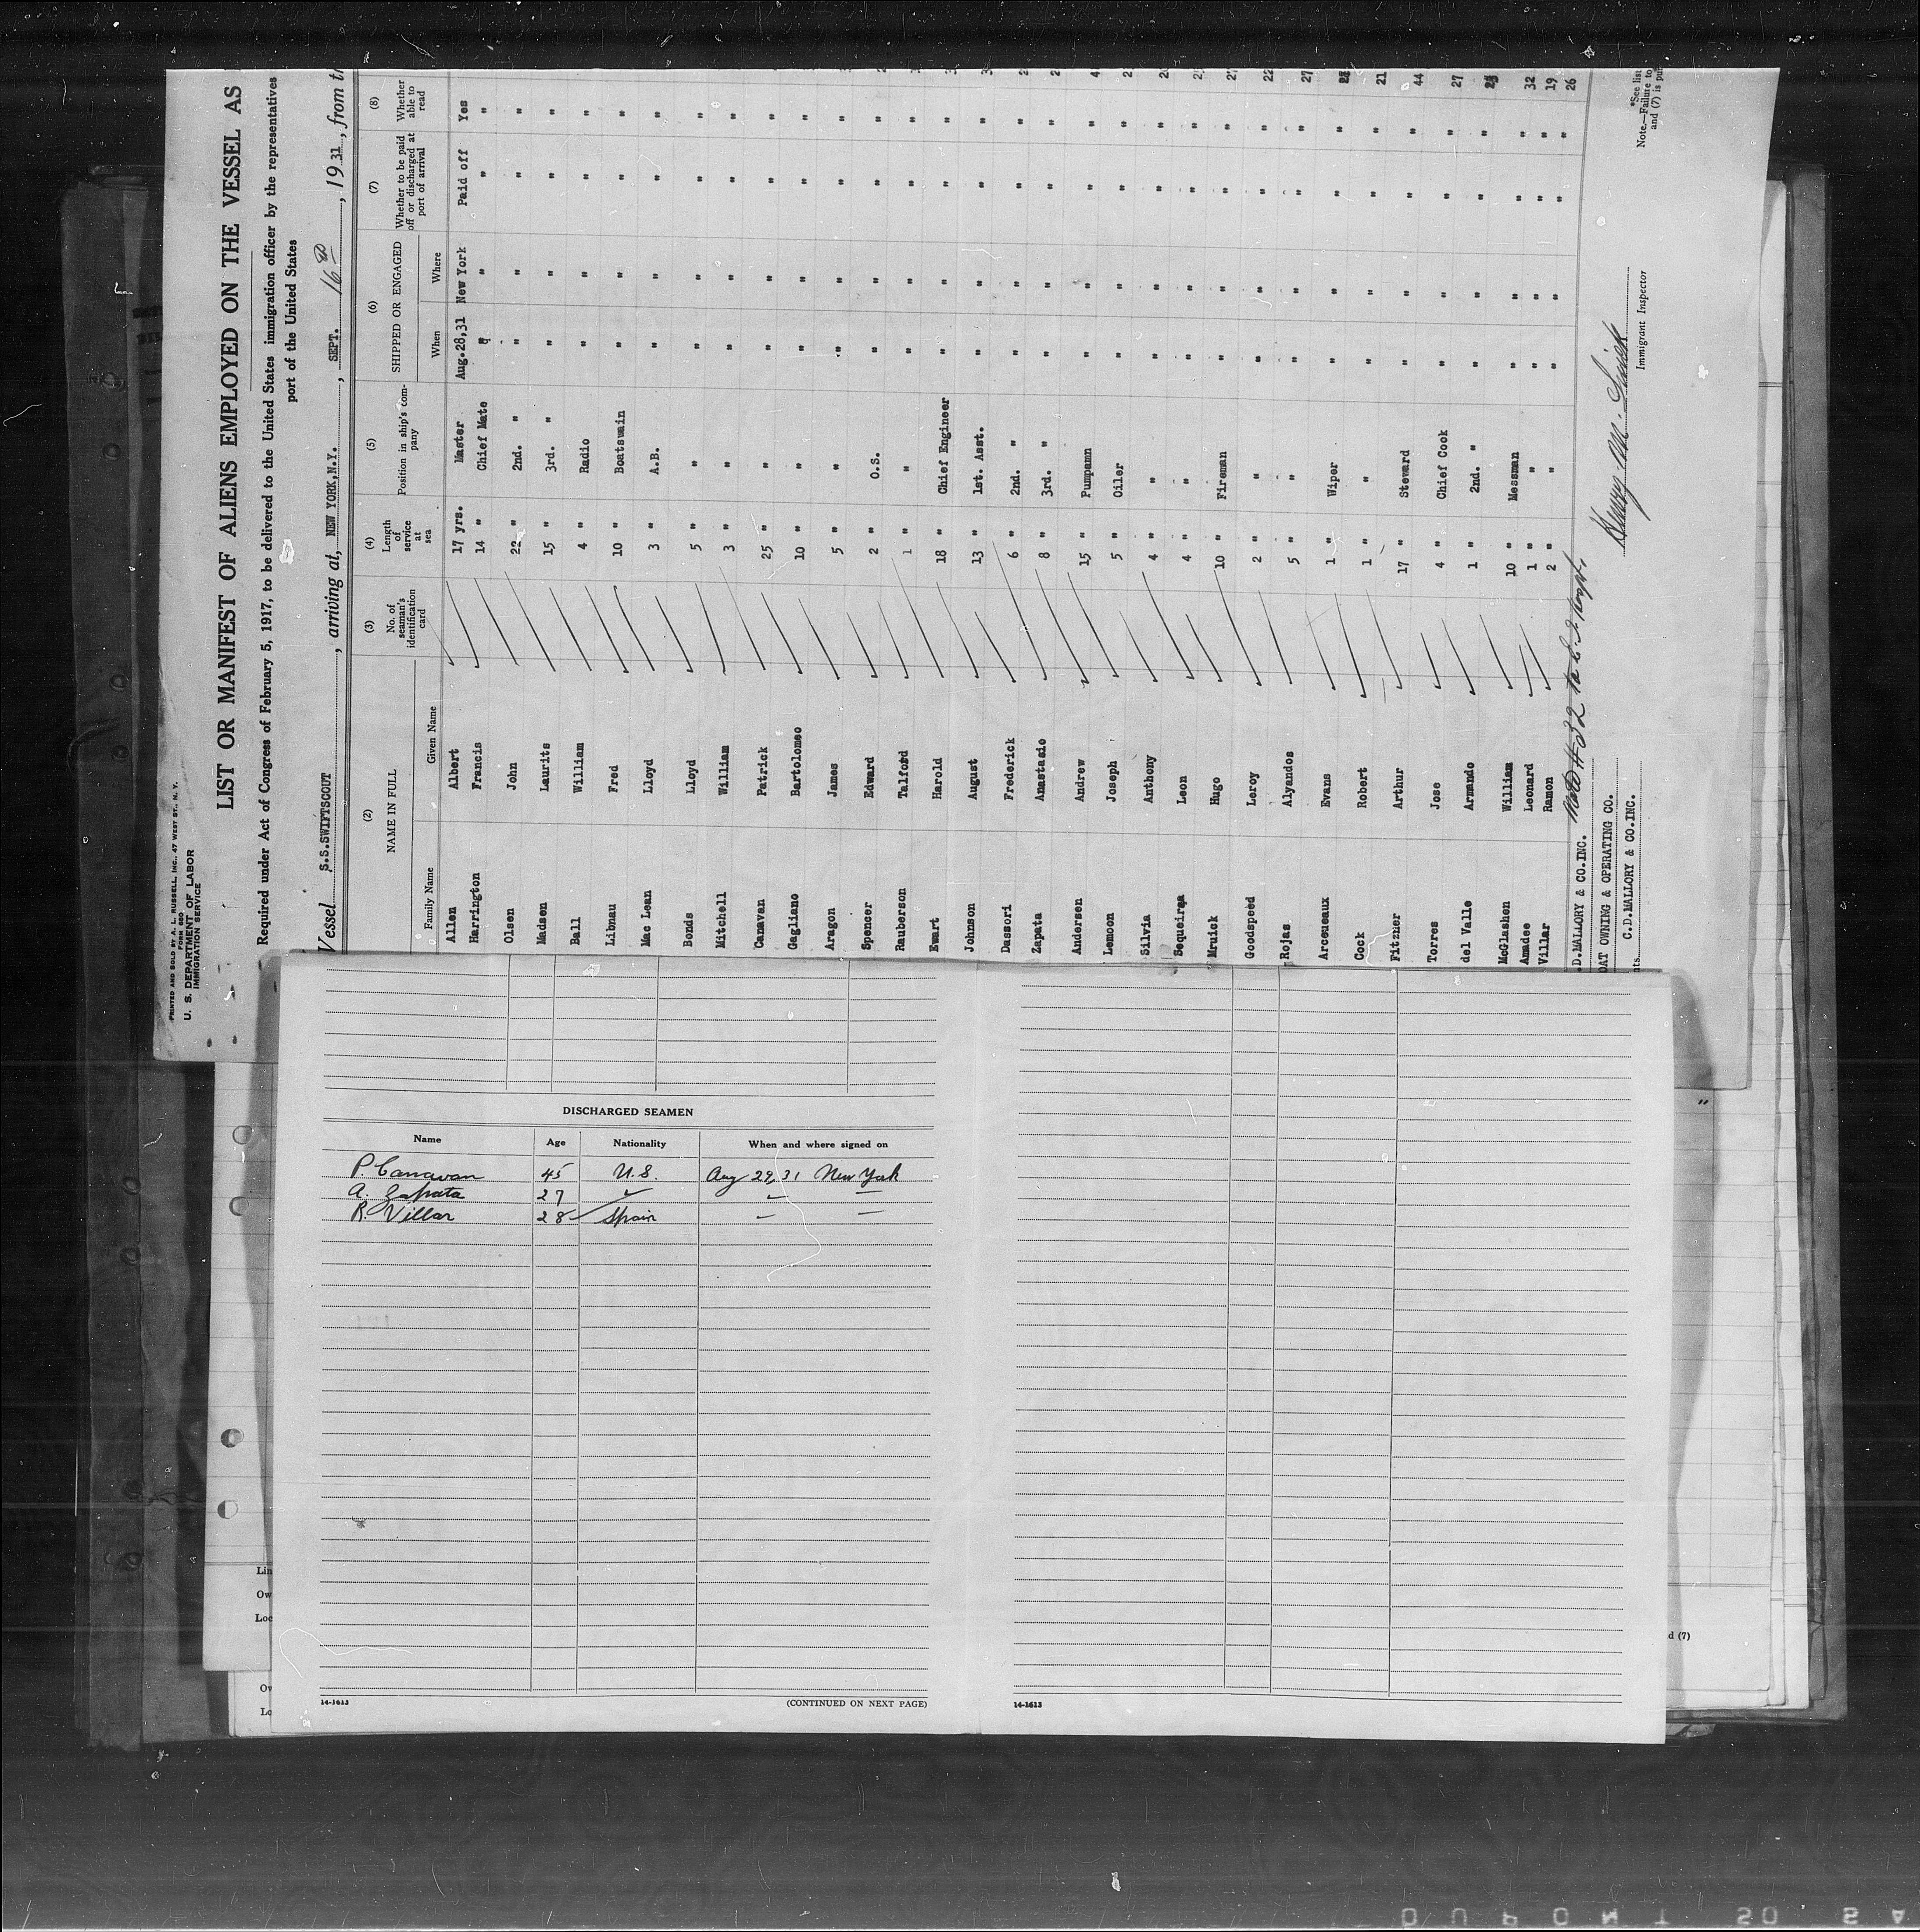 PRINTED AND SOLD BY A. L. RUSSELL, INC., 47 WEST ST., N. Y.
FORM 680
U. S. DEPARTMENT OF LABOR
IMMIGRATION SERVICE
LIST OR MANIFEST OF ALIENS EMPLOYED ON THE VESSEL AS
Required under Act of Congress of February 5, 1917, to be delivered to the United States immigration officer by the representatives
port of the United States
Vessel S.S.SWIFTSCOUT, arriving at, NEW YORK,N.Y., SEPT. 16, 1931, from
(2) NAME IN FULL (3) No. of seaman's identification card (4) Length of service at sea (5) Position in ship's company (6) SHIPPED OR ENGAGED (7) Whether to be paid off or discharged at port of arrival (8) Whether able to read
Family Name Given Name When Where
Allen Albert 17 yrs. Master Aug.28,31 New York Paid off Yes
Harrington Francis 14 " Chief Mate " " " "
Olsen John 22 " 2nd. " " " " "
Madsen Laurits 15 " 3rd. " " " " "
Ball William 4 " Radio " " " "
Libnau Fred 10 " Boatswain " " " "
Mac Lean Lloyd 3 " A.B. " " " "
Bonds Lloyd 5 " " " " " "
Mitchell William 3 " " " " " "
Canavan Patrick 25 " " " " " "
Gagliano Bartolomeo 10 " " " " " "
Aragon James 5 " " " " " "
Spencer Edward 2 " O.S. " " " "
Rauberson Talford 1 " " " " " "
Ewart Harold 18 " Chief Engineer " " " "
Johnson August 13 " 1st. Asst. " " " "
Dassori Frederick 6 " 2nd. " " " " "
Zapata Anastasio 8 " 3rd. " " " " "
Andersen Andrew 15 " Pumpamn " " " "
Lemoon Joseph 5 " Oiler " " " "
Silvia Anthony 4 " " " " " "
Sequeirna Leon 4 " " " " " "
Mruick Hugo 10 " Fireman " " " " 27
Goodspeed Leroy 2 " " " " " " 22
Rojas Alyandos 5 " " " " " " 27
Arceueaux Evans 1 " Wiper " " " "
Cock Robert 1 " " " " " " 21
Fitzner Arthur 17 " Steward " " " " 44
Torres Jose 4 " Chief Cook " " " " 27
del Valle Armando 1 " 2nd. " " " " "
McGlashen William 10 " Messman " " " " 32
Amadee Leonard 1 " " " " " " 19
Villar Ramon 2 " " " " " " 26
.D.MALLORY & CO.INC.
OAT OWNING & OPERATING CO.
C.D.MALLORY & CO.INC.
nts
Immigrant Inspector
*See list
Note.—Failure to
and (7) is
DISCHARGED SEAMEN
Name Age Nationality When and where signed on
P. Canavan 45 U.S. Aug 29, 31 New York
A. Zapata 27 " " "
R. Villar 28 Spain " "
14-1613
(CONTINUED ON NEXT PAGE)
14-1613
Lin
Ow
Loc
Ow
Lo
d (7)
DUPONT SO SA